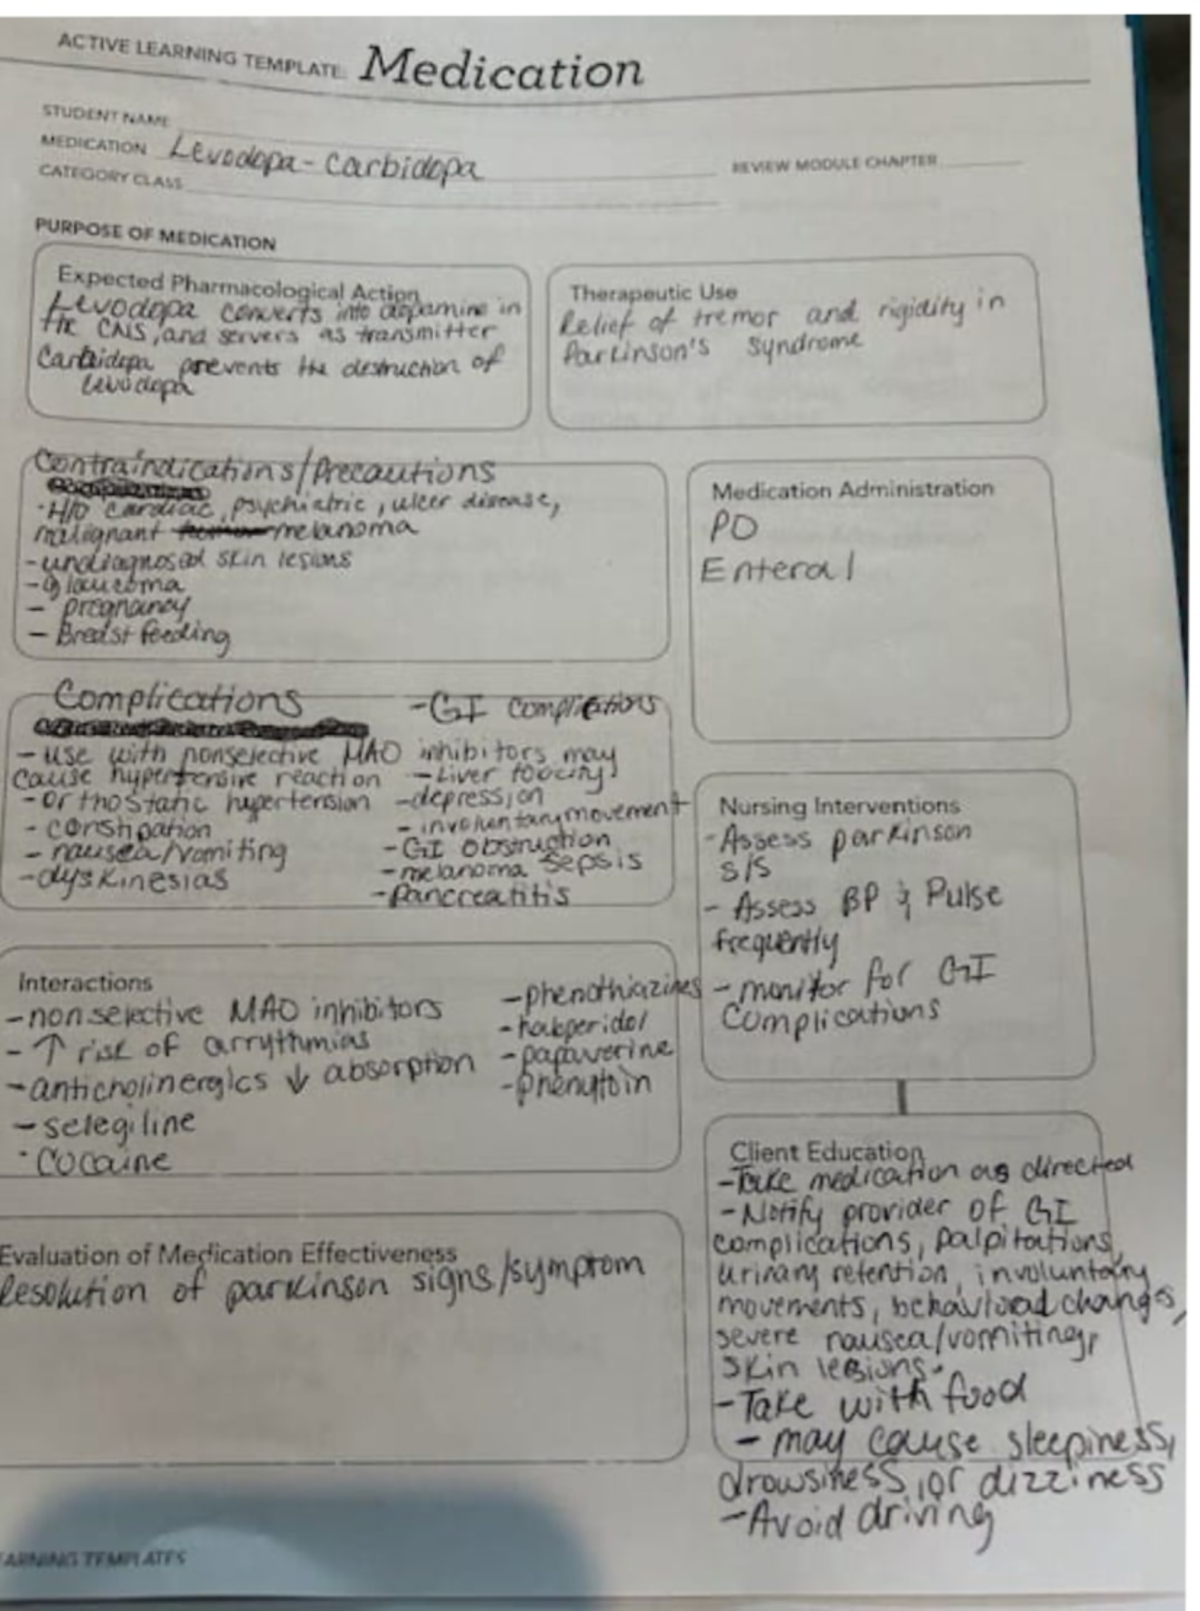 ACTIVE LEARNING TEMPLATE: Medication
STUDENT NAME
MEDICATION Levodopa-Carbidopa
REVIEW MODULE CHAPTER
CATEGORY CLASS
PURPOSE OF MEDICATION
Expected Pharmacological Action
Levodopa converts into dopamine in
the CNS, and servers as transmitter
Carbidopa prevents the destruction of
levodopa
Therapeutic Use
Relief of tremor and rigidity in
Parkinson's syndrome
Contraindications/Precautions
·H/O cardiac, psychiatric, ulcer disease,
malignant melanoma
-undiagnosed skin lesions
-glaucoma
- pregnancy
- Breast feeding
Medication Administration
PO
Enteral
Complications
-use with nonselective MAO inhibitors may
cause hypertensive reaction
-orthostatic hypertension
- constipation
- nausea/vomiting
-dyskinesias
-GI complications
-Liver toxcity
-depression
- involuntary movement
-GI obstruction
-melanoma sepsis
-Pancreatitis
Nursing Interventions
-Assess parkinson
s/s
- Assess BP & Pulse
frequently
-monitor for GI
complications
Interactions
-nonselective MAO inhibitors
- ↑ risk of arrythmias
-anticholinergics ↓ absorption
-selegiline
·cocaine
-phenothiazines
-haloperidol
-papaverine
-phenytoin
Client Education
-Take medication as directed
-Notify provider of GI
complications, palpitations,
urinary retention, involuntary
movements, behavioral changes,
severe nausea/vomiting,
skin lesions.
-Take with food
- may cause sleepiness,
drowsiness, or dizziness
-Avoid driving
Evaluation of Medication Effectiveness
Resolution of parkinson signs/symptom
LEARNING TEMPLATES